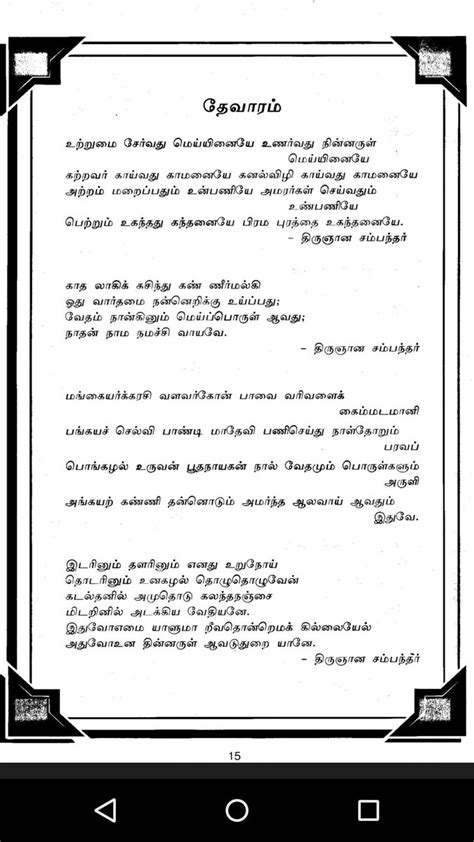 தேவாரம்
உற்றுமை சேர்வது மெய்யினையே உணர்வது நின்னருள்
மெய்யினையே
கற்றவர் காய்வது காமனையே கனல்விழி காய்வது காமனையே
அற்றம் மறைப்பதும் உன்பணியே அமரர்கள் செய்வதும்
உன்பணியே
பெற்றும் உகந்தது கந்தனையே பிரம புரத்தை உகந்தனையே.
- திருஞான சம்பந்தர்
காத லாகிக் கசிந்து கண் ணீர்மல்கி
ஓது வார்தமை நன்னெறிக்கு உய்ப்பது;
வேதம் நான்கினும் மெய்ப்பொருள் ஆவது;
நாதன் நாம நமச்சி வாயவே.
- திருஞான சம்பந்தர்
மங்கையர்க்கரசி வளவர்கோன் பாவை வரிவளைக்
கைம்மடமானி
பங்கயச் செல்வி பாண்டி மாதேவி பணிசெய்து நாள்தோறும்
பரவப்
பொங்கழல் உருவன் பூதநாயகன் நால் வேதமும் பொருள்களும்
அருளி
அங்கயற் கண்ணி தன்னொடும் அமர்ந்த ஆலவாய் ஆவதும்
இதுவே.
இடரினும் தளரினும் எனது உறுநோய்
தொடரினும் உனகழல் தொழுதொழுவேன்
கடல்தனில் அமுதொடு கலந்தநஞ்சை
மிடறினில் அடக்கிய வேதியனே.
இதுவோஎமை யாளுமா றீவதொன்றெமக் கில்லையேல்
அதுவோஉன தின்னருள் ஆவடுதுறை யானே.
- திருஞான சம்பந்தர்
15